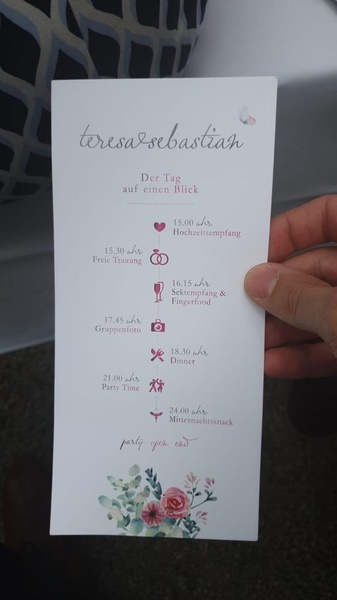 teresa&sebastian
Der Tag
auf einen Blick
15.00 uhr
Hochzeitsempfang
15.30 uhr
Freie Trauung
16.15 uhr
Sektempfang &
Fingerfood
17.45 uhr
Gruppenfoto
18.30 uhr
Dinner
21.00 uhr
Party Time
24.00 uhr
Mitternachtssnack
party open end